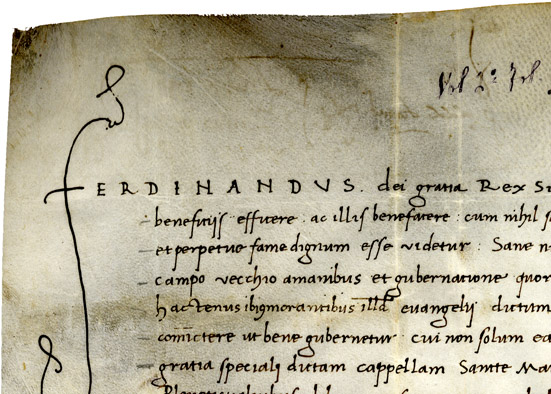 Vol 2º fol.
FERDINANDUS. dei gratia Rex Si
beneficijs efficere : ac illis benefacere : cum nihil
et perpetue fame dignum esse videtur : Sane
campo vecchio amanibus et gubernatione quor
hactenus ibi morantibus illā evangelij dictum
comictere ut bene gubernetur : cui non solum ea
gratia speciali dictam cappellam Sancte Mar